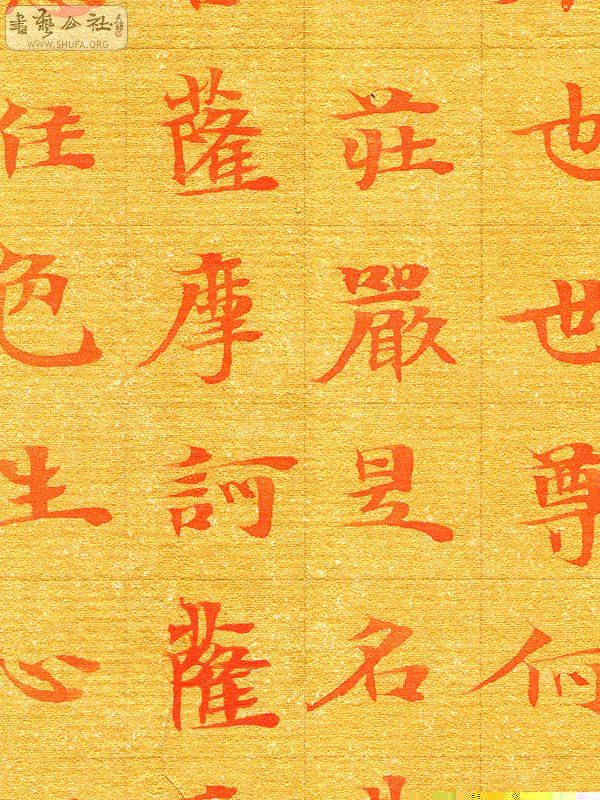 書藝公社
WWW.SHUFA.ORG
也世尊何
莊嚴是名
薩摩訶薩
住色生心